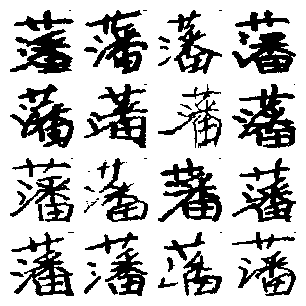 藩藩藩藩
藩藩藩藩
藩藩藩藩
藩藩藩藩